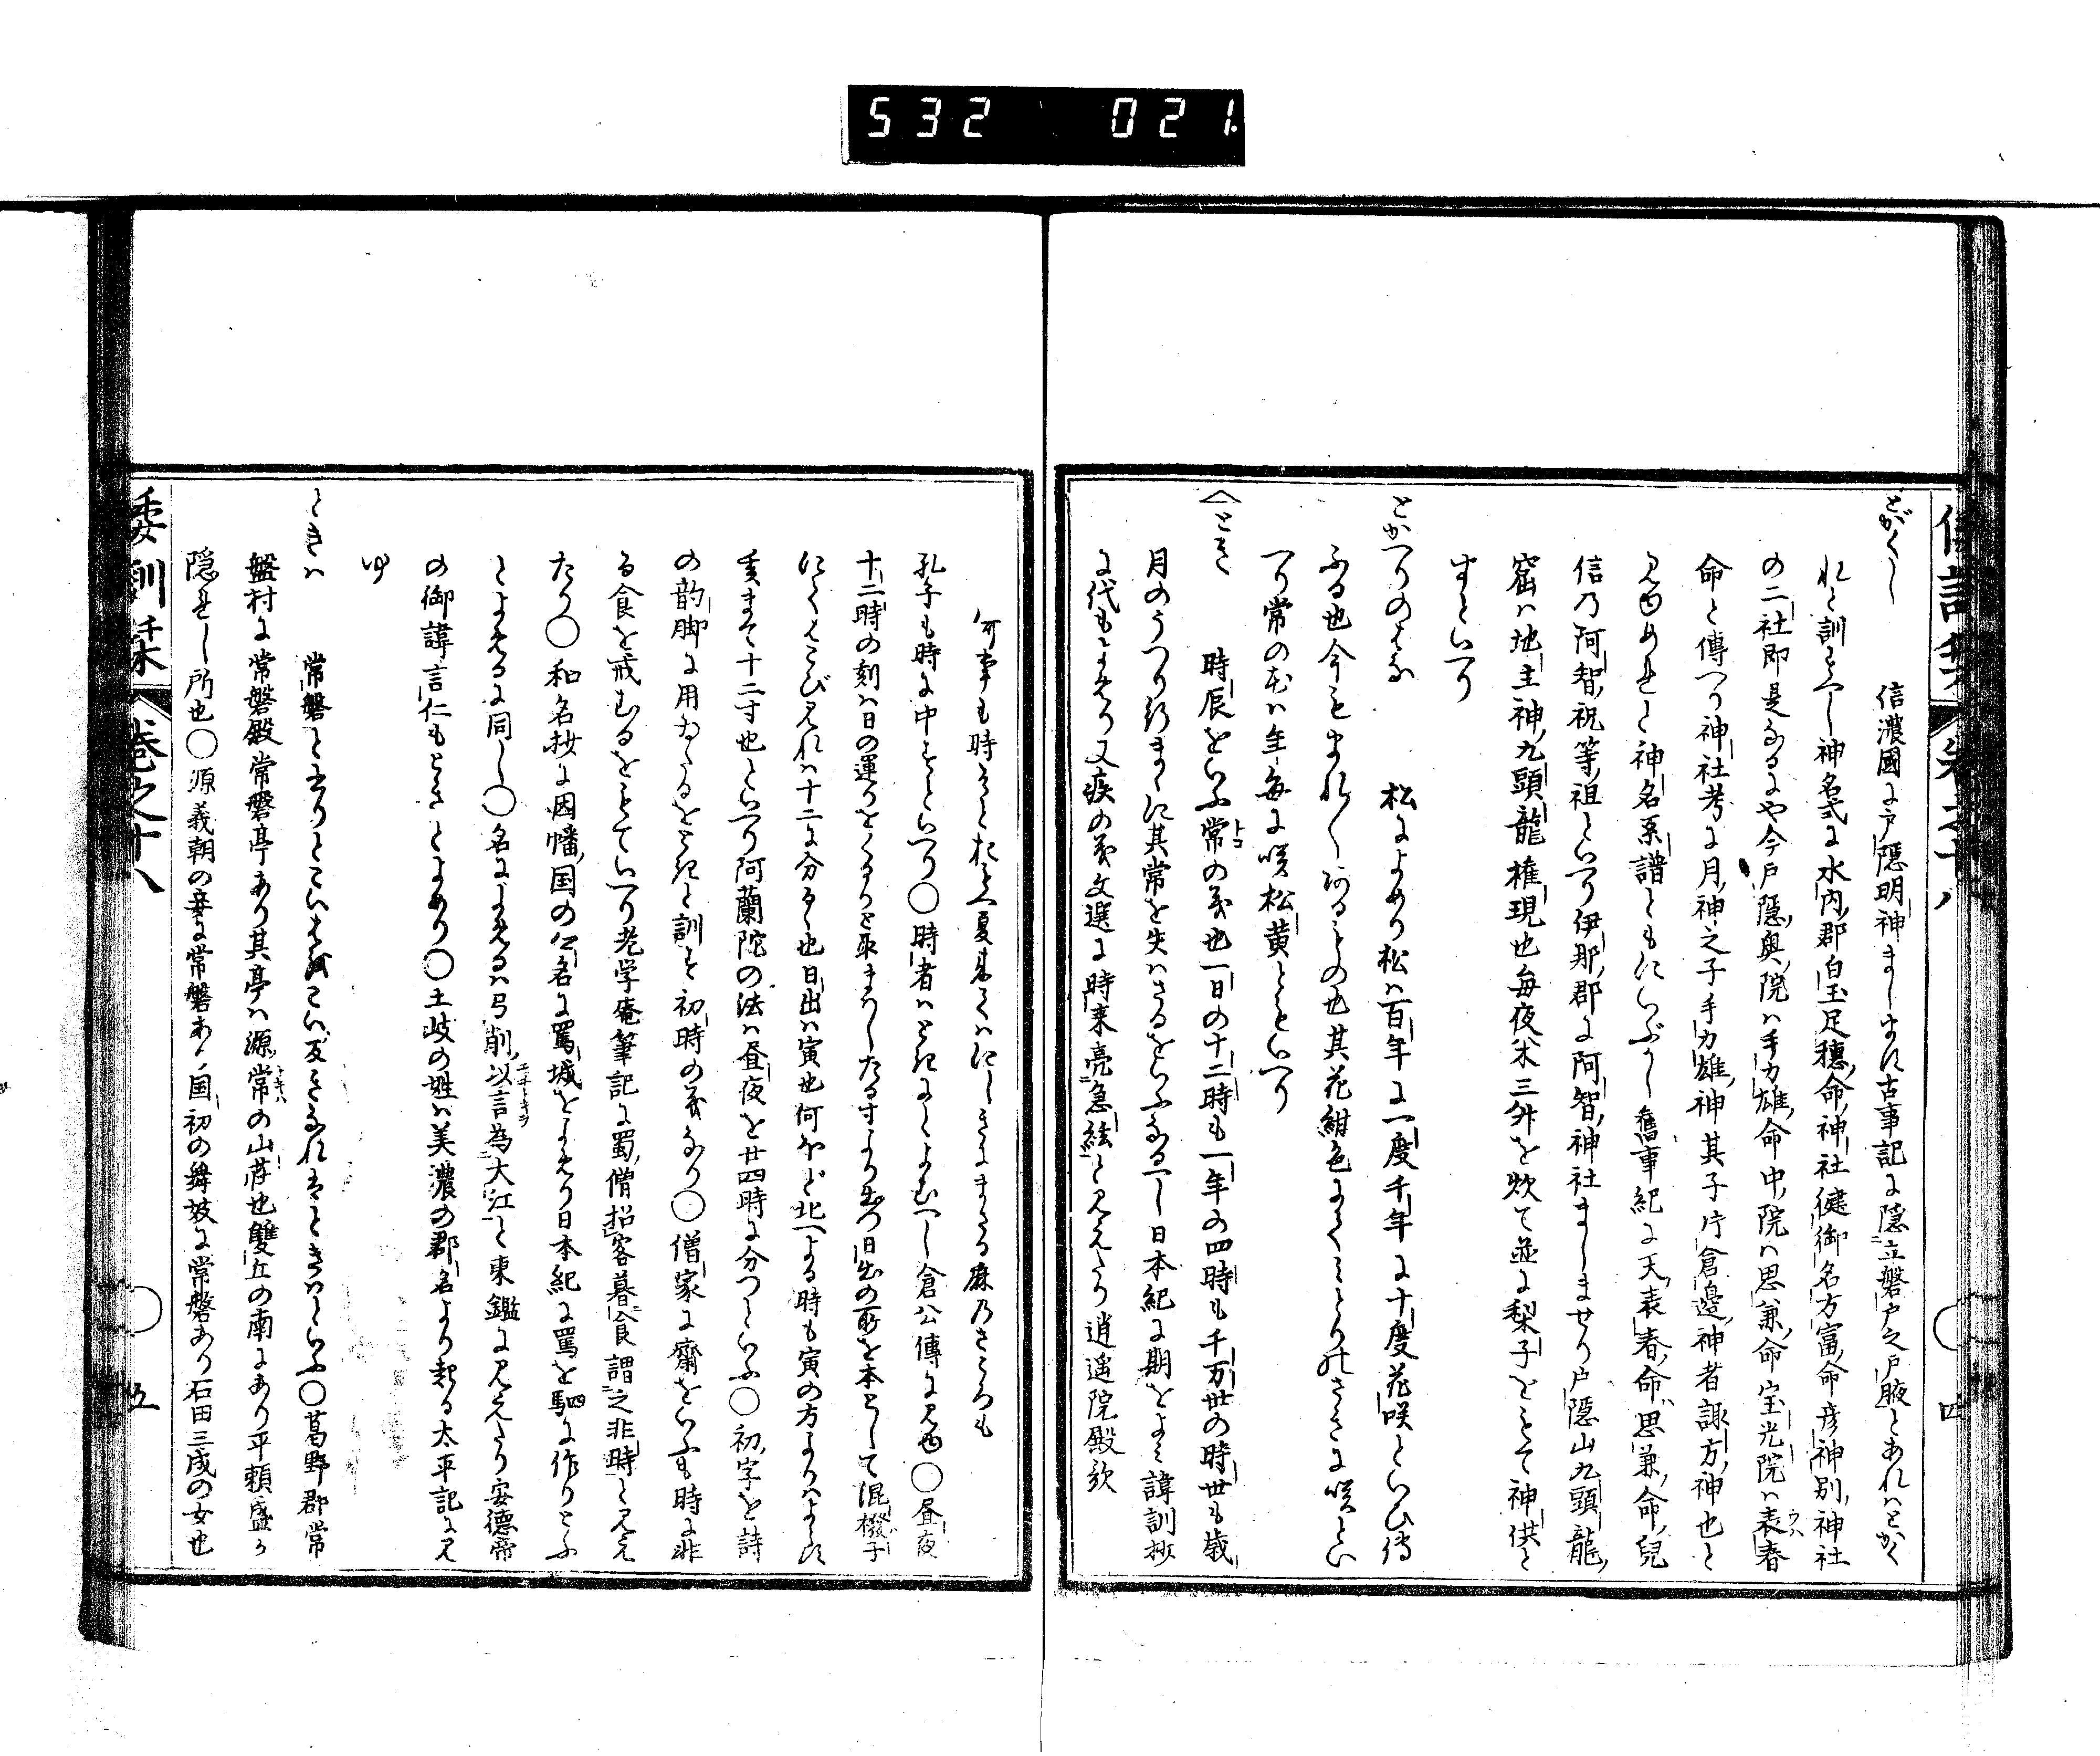 532 021.
倭訓栞 巻之十八 四
とがくし 信濃國に戸隠明神ましませに古事記に隠立磐戸之戸腋とあれはとかく
れと訓すへし神名式に水内郡白玉足穂命神社健御名方富命彦神別神社
の二社即是なるにや今戸隠奥院は手力雄命中院は思兼命宝光院は表春
命と傳へり神社考に月神之子手力雄神其子片倉邊神者諏方神也と
見ゆめれと神名系譜ともにいぶかし舊事紀に天表春命思兼命兒
信乃阿智祝等祖といへり伊那郡に阿智神社ましませり戸隠山九頭龍
窟は地主神九頭龍権現也毎夜米三升を炊て並に梨子をもて神供と
すといへり
とかへりのはな 松によめり松は百年に一度千年に十度花咲といひ傳
ふる也今もまれ〳〵あるもの也其花紺色にてみとりのさきに咲とい
へり常の花は年毎に咲松黄ともいへり
とき 時辰をいふ常の義也一日の十二時も一年の四時も千万世の時世も歳
月のうつり行まゝに其常を失はさるをいふなるへし日本紀に期をよみ諱訓抄
に代もよめり又疾の義文選に時来亮急絃と見えたり逍遥院殿歌
何事も時そとおもへ夏来てはにしきにまさる麻乃さころも
孔子も時に中すといへり○時者はときにとよむへし倉公傳に見ゆ○昼夜
十二時の刻は日の運りをくるりと取まはしたる寸より出つ日出の所を本として混橃子
にてはこび見れは十二に分るゝ也日出は寅也何ほど北へよる時も寅の方よりはよらす
亥まて十二寸也といへり阿蘭陀の法は昼夜を廿四時に分つといふ○初字を詩
の韵脚に用ゐたるをときと訓す初時の義なり○僧家に齋をいふも時に非
る食を戒むるをもていへり老学庵筆記に蜀僧招客暮食謂之非時と見え
たり○和名抄に因幡国の公名に罵城をよめり日本紀に罵を駟に作りとふ
とよめるに同し○名によめるは弓削以言為大江と東鑑に見えたり安徳帝
の御諱言仁もときとよめり○土岐の姓は美濃の郡名より起る太平記に見
ゆ
ときは 常磐と立りとこいはを ていは反となれはときはといふ○葛野郡常
盤村に常磐殿常磐亭あり其亭は源常の山荘也雙丘の南にあり平頼盛か
隠れし所也○源義朝の妾に常磐あり国初の舞妓に常磐あり石田三成の女也
倭訓栞 巻之十八 五